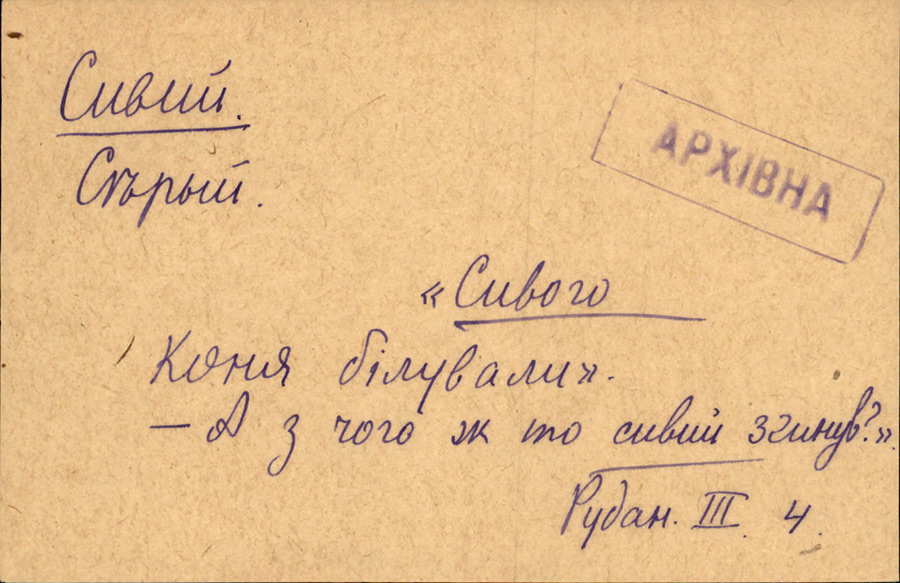 Сивий.
АРХІВНА
Сѣрый.
«Сивого
коня білували».
— А з чого ж то сивий згинув?».
Рудан. III. 4.